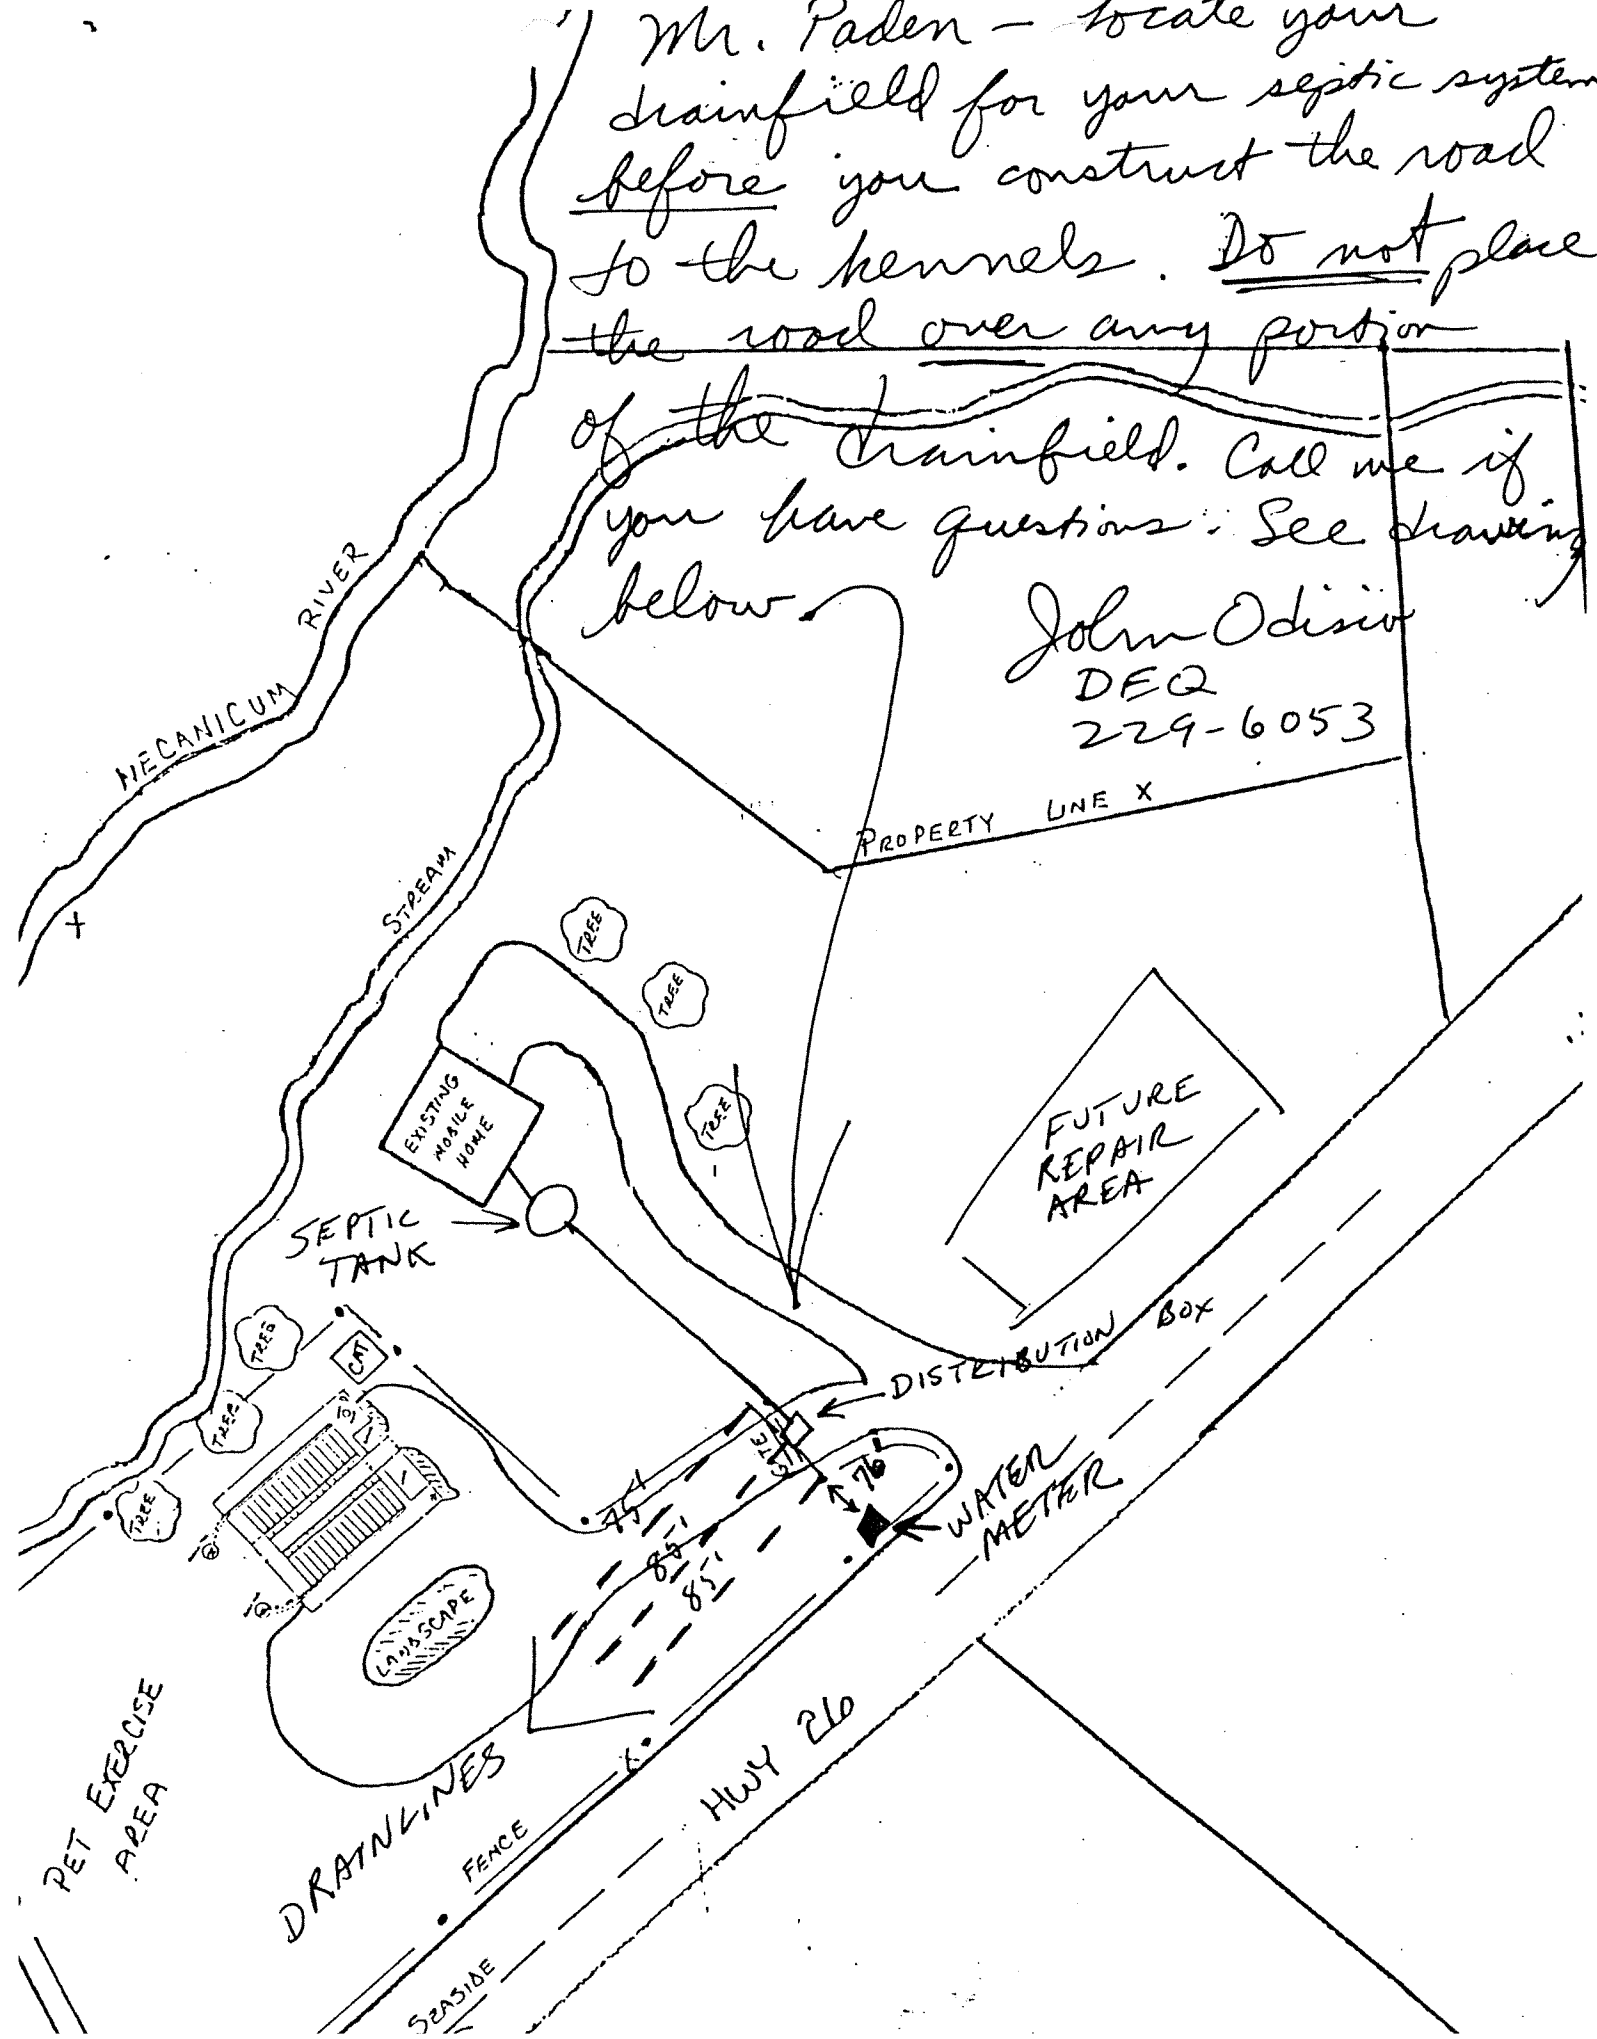 Mr. Paden – Locate your
drainfield for your septic system
before you construct the road
to the kennels. Do not place
the road over any portion
of the drainfield. Call me if
you have questions. See drawing
below.
John Odisio
DEQ
229-6053
RIVER
NECANICUM
PROPERTY LINE X
STREAM
X
TREE
TREE
TREE
EXISTING
MOBILE
HOME
FUTURE
REPAIR
AREA
SEPTIC
TANK
DISTRIBUTION BOX
TREE
CAT
TREE
TREE
GATE
76'
WATER
METER
75'
85'
85'
LANDSCAPE
PET EXERCISE
AREA
DRAINLINES
X
FENCE
HWY 26
SEASIDE